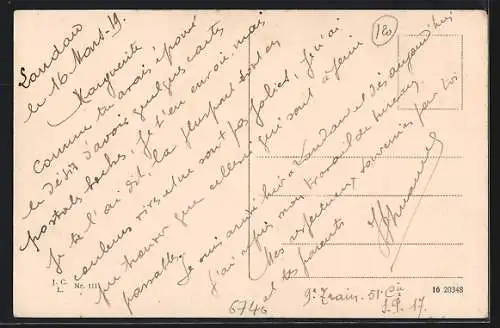 Landau
le 16 Mars-19.
Marguerite
Comme tu avais éprouvé
le désir d'avoir quelques cartes
postales boches, je t'en envoie, mais
je te l'ai dit, la plupart sont en
couleurs vives et ne sont pas jolies; je n'ai
pu trouver que celles-ci qui sont à peine
passables.
Je suis arrivé hier à Landau et dès aujourd'hui
j'ai repris mon travail de bureau.
Mes respectueux souvenirs pour toi
et tes parents
120
J. C.
L.
Nr. 111
16 20348
9e Train. 51e Cie
S.P. 17.
6746